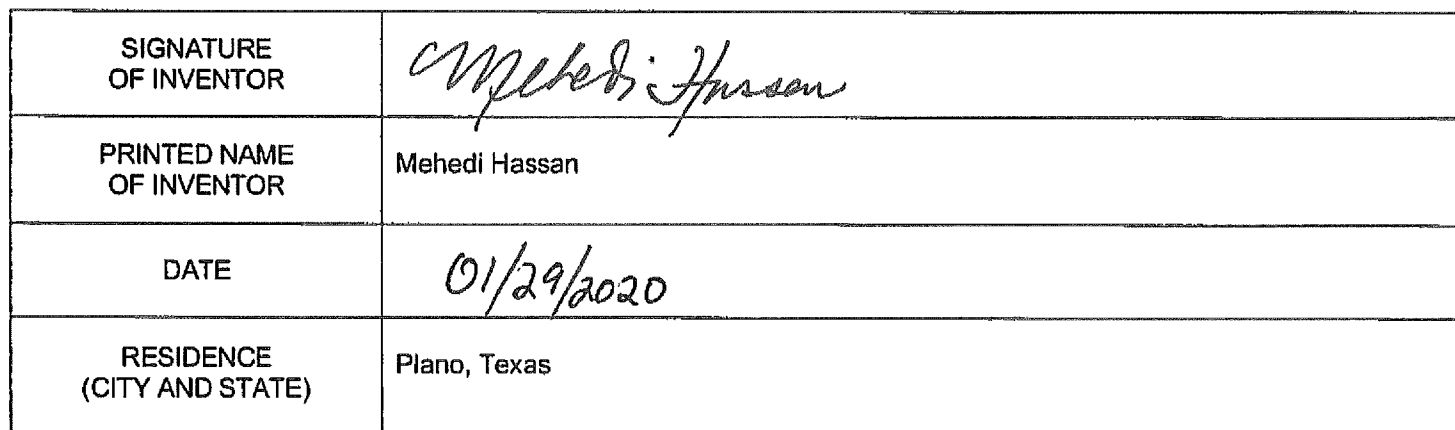 SIGNATURE
OF INVENTOR
Mehedi Hassan
PRINTED NAME
OF INVENTOR
Mehedi Hassan
DATE
01/29/2020
RESIDENCE
(CITY AND STATE)
Plano, Texas